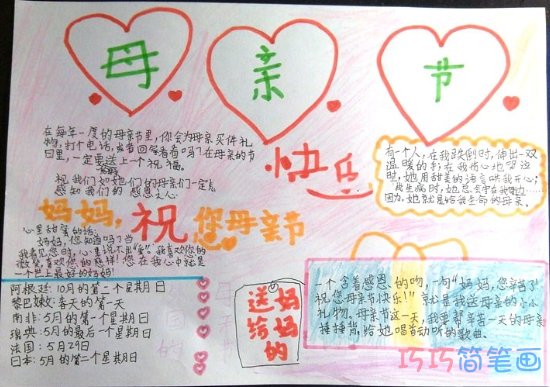 母 亲 节
在每年一度的母亲节里,你会为母亲买件礼
物,打个电话,或者回家看看吗?在母亲的节
日里,一定要送上个祝福。
祝我们如她们的母亲们一定
感知我们的感恩之心
快乐
有一个人,在我跌倒时,伸出一双
温暖的手;在我伤心地哭泣
时,她用甜美的语言哄我开心;
我生病时,她总会守在我身边
因为,她就是给我生命的母亲。
妈妈,祝您母亲节
心里甜蜜的话:
妈妈,您知道吗?当
我看见您时,心里说不出"爱"。我喜欢您的
微笑,喜欢您的头发!您在我心中就是
一个世上最好的妈妈!
阿根廷:10月的第二个星期日
黎巴嫩:春天的第一天
南非:5月的第一个星期日
瑞典:5月的最后一个星期日
法国:5月29日
日本:5月的第二个星期日
送给妈妈的
一个含着感恩的吻,一句"妈妈,您辛苦了
祝您母亲节快乐!"就是我送母亲的小小
礼物。母亲节这一天,我要帮辛苦一天的母亲
捶捶背,给她唱首动听的歌曲。
巧巧简笔画